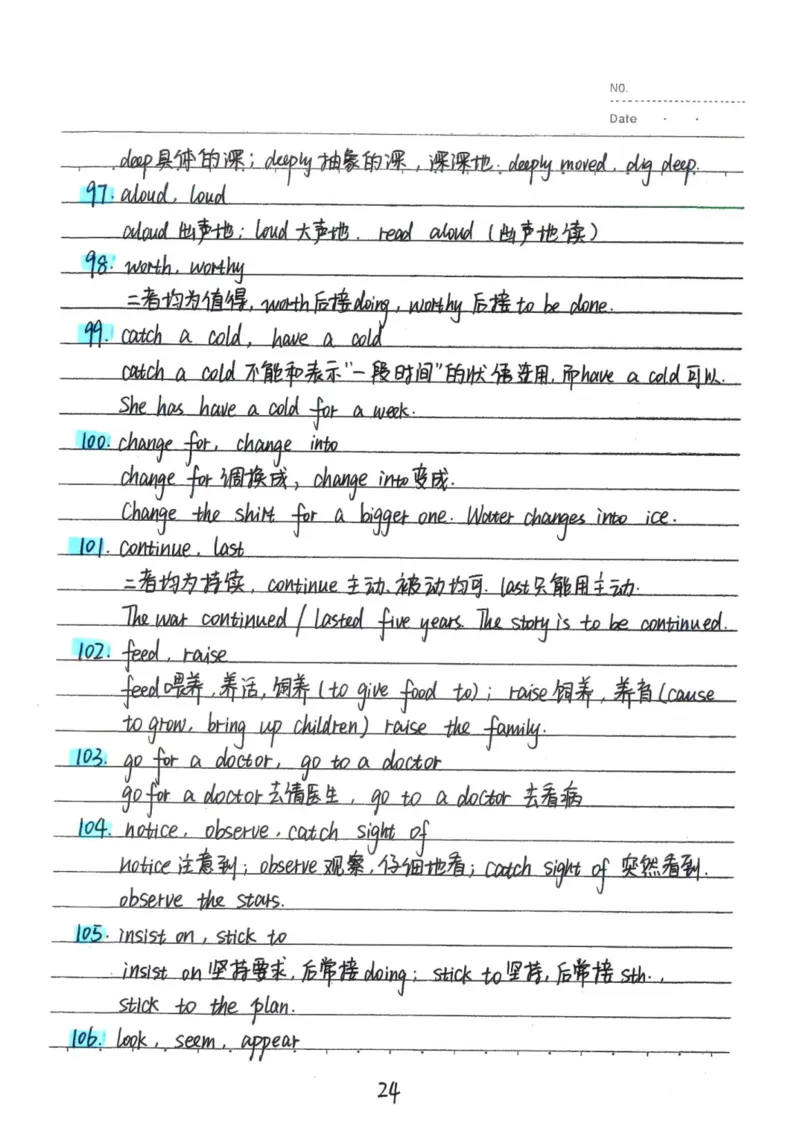 NO.
Date
deep具体的深；deeply抽象的深，深深地. deeply moved. dig deep.
97. aloud, loud
aloud 出声地；loud 大声地. read aloud (出声地读)
98. worth, worthy
二者均为值得, worth后接doing, worthy 后接 to be done.
99. catch a cold, have a cold
catch a cold 不能和表示"一段时间"的状语连用, 而have a cold可以.
She has have a cold for a week.
100. change for, change into
change for 调换成, change into变成.
Change the shirt for a bigger one. Water changes into ice.
101. continue, last
二者均为持续, continue 主动、被动均可. last只能用主动.
The war continued / lasted five years. The story is to be continued.
102. feed, raise
feed喂养, 养活, 饲养 (to give food to)；raise饲养, 养育 (cause
to grow, bring up children) raise the family.
103. go for a doctor, go to a doctor
go for a doctor去请医生, go to a doctor 去看病
104. notice, observe, catch sight of
notice 注意到；observe 观察, 仔细地看；catch sight of 突然看到.
observe the stars.
105. insist on, stick to
insist on 坚持要求, 后常接doing；stick to坚持, 后常接 sth.
stick to the plan.
106. look, seem, appear
24